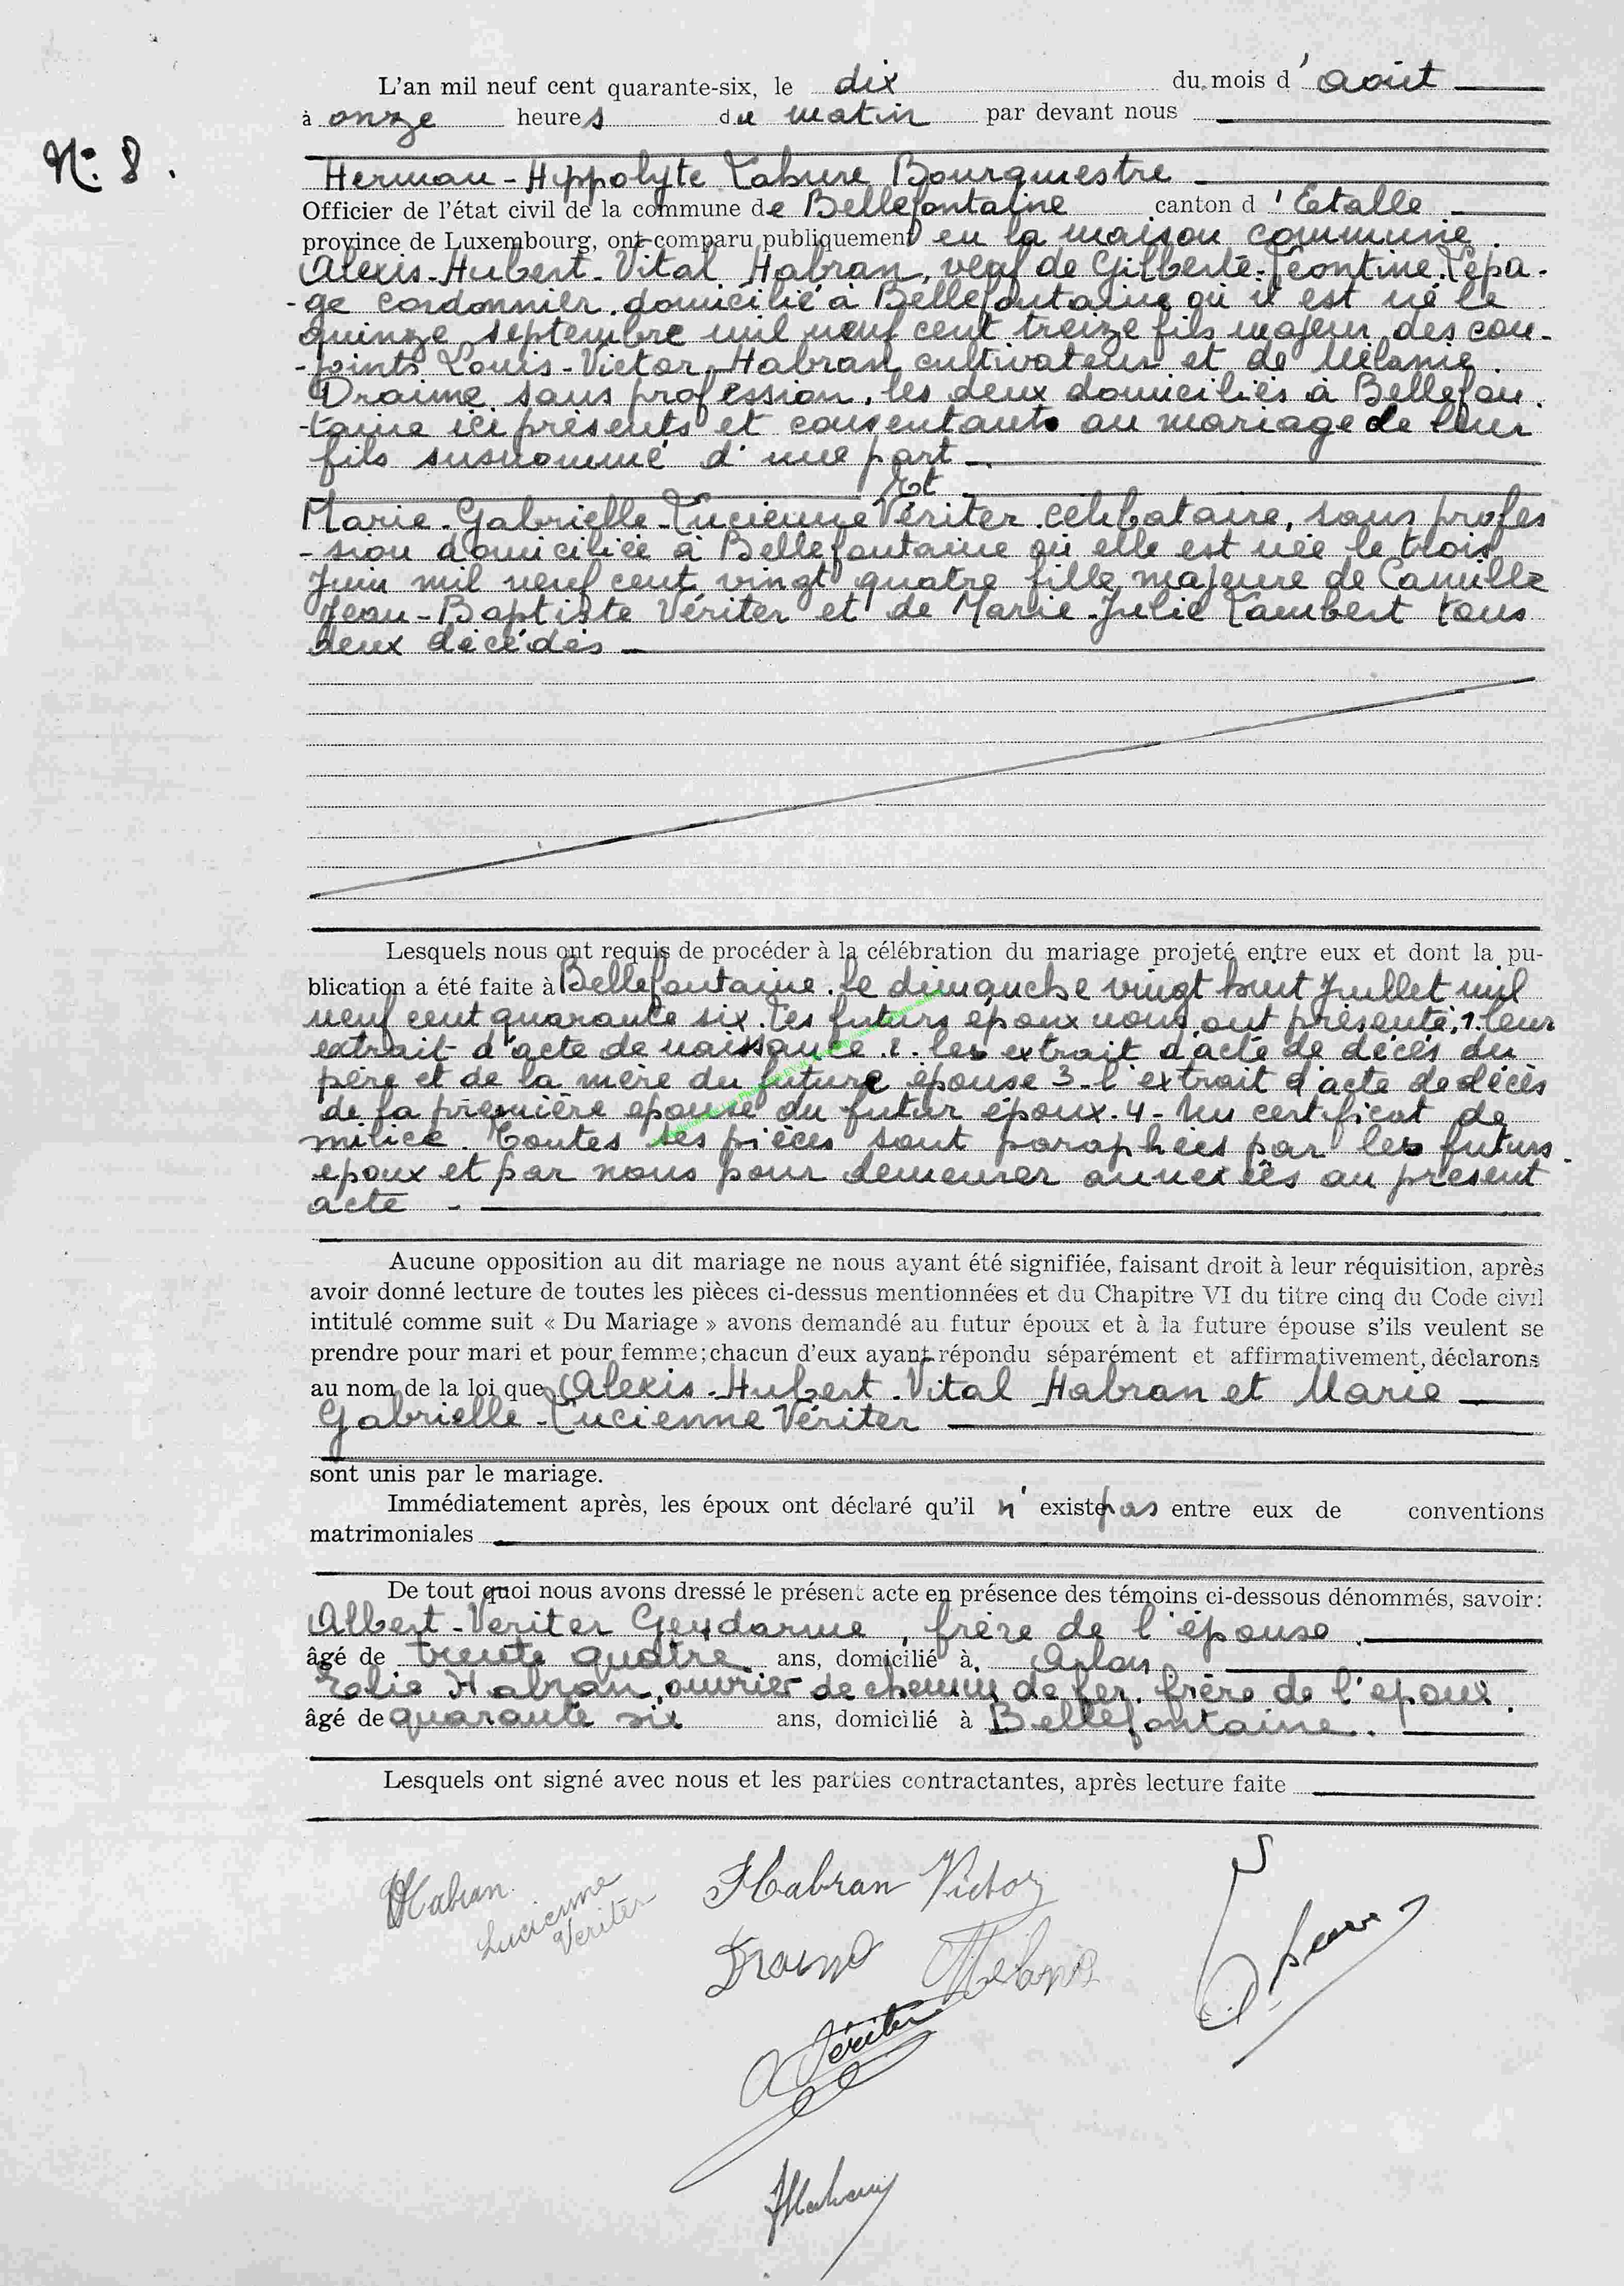 L'an mil neuf cent quarante-six, le dix du mois d'août
à onze heures du matin par devant nous
N: 8.
Herman-Hippolyte Lahure Bourgmestre
Officier de l'état civil de la commune de Bellefontaine canton d'Etalle
province de Luxembourg, ont comparu publiquement en la maison commune.
Alexis-Hubert-Vital Habran, veuf de Gilberte-Léontine Lepa-
-ge cordonnier domicilié à Bellefontaine où il est né le
quinze septembre mil neuf cent treize fils majeur des con-
-joints Louis-Victor Habran cultivateur et de Mélanie
Draime sans profession, les deux domiciliés à Bellefon.
-taine ici présents et consentants au mariage de leur
fils susnommé d'une part
Et
Marie-Gabrielle-Lucienne Vériter célibataire, sans profes
-sion domiciliée à Bellefontaine où elle est née le trois
Juin mil neuf cent vingt quatre fille majeure de Camille
Jean-Baptiste Vériter et de Marie-Julie Lambert tous
deux décédés
Lesquels nous ont requis de procéder à la célébration du mariage projeté entre eux et dont la pu-
blication a été faite à Bellefontaine. le dimanche vingt huit Juillet mil
neuf cent quarante six. Les futurs époux nous ont présenté, 1. leur
extrait d'acte de naissance 2. les extrait d'acte de décès du
père et de la mère du future épouse 3-l'extrait d'acte de décès
de la première épouse du futur époux. 4- Un certificat de
milice. Toutes ses pièces sont paraphées par les futurs
époux et par nous pour demeurer annexées au présent
acte -
Aucune opposition au dit mariage ne nous ayant été signifiée, faisant droit à leur réquisition, après
avoir donné lecture de toutes les pièces ci-dessus mentionnées et du Chapitre VI du titre cinq du Code civil
intitulé comme suit « Du Mariage » avons demandé au futur époux et à la future épouse s'ils veulent se
prendre pour mari et pour femme; chacun d'eux ayant répondu séparément et affirmativement, déclarons
au nom de la loi que Alexis-Hubert-Vital Habran et Marie
Gabrielle-Lucienne Vériter
sont unis par le mariage.
Immédiatement après, les époux ont déclaré qu'il n'existe pas entre eux de conventions
matrimoniales
De tout quoi nous avons dressé le présent acte en présence des témoins ci-dessous dénommés, savoir:
Albert-Veriter Gendarme, frère de l'épouse
âgé de trente quatre ans, domicilié à Arlon
Habran, ouvrier de chemin de fer. frère de l'epoux.
âgé de quarante six ans, domicilié à Bellefontaine.
Lesquels ont signé avec nous et les parties contractantes, après lecture faite
Habran Habran Victor
Lucienne Veriter
Draime Mélanie
A Vériter
Habran